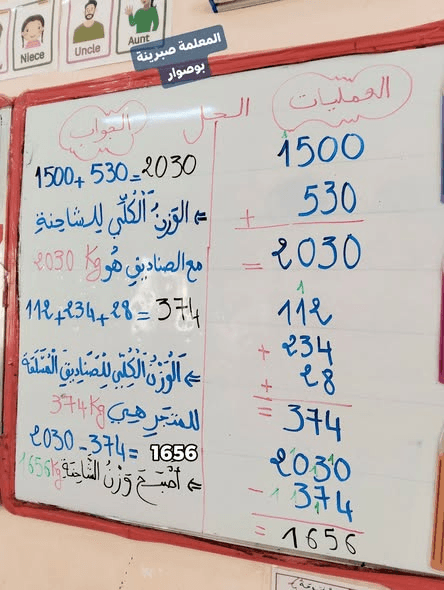 Niece
Uncle
Aunt
المعلمة صبرينة
بوصوار
الحل
العمليات
1500
+ 530
= 2030
112
+ 234
+ 28
= 374
2030
- 374
= 1656
الجواب
1500 + 530 = 2030
⇐ الوَزنُ الْكُلِّي للشاحنةِ
مع الصناديق هُو 2030 Kg
112 + 234 + 28 = 374
⇐ الْوَزْنُ الْكُلِّي لِلصَّنَادِيقِ الْمُسَلَّمَةِ
للمتجرِ هِيَ 374 Kg
2030 - 374 = 1656
⇐ أَصْبَحَ وَزْنُ الشَّاحِنَةِ 1656 Kg